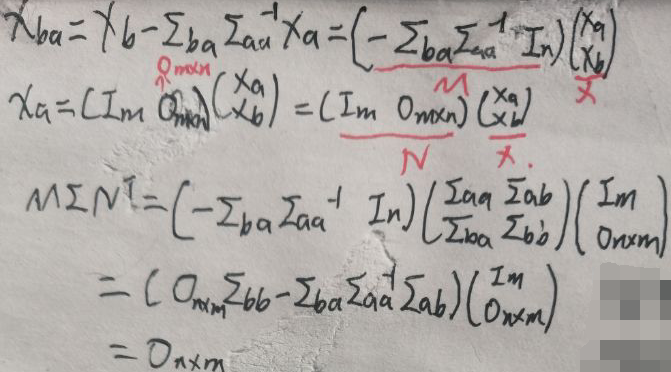 Xba = Xb - Σba Σaa⁻¹ Xa = (-Σba Σaa⁻¹ In)(Xa Xb)
0mxn M X
Xa = (Im 0mxn)(Xa Xb) = (Im 0mxn)(Xa Xb)
N X.
MΣNᵀ = (-Σba Σaa⁻¹ In)(Σaa Σab Σba Σbb)(Im 0nxm)
= (0nxm Σbb - Σba Σaa⁻¹ Σab)(Im 0nxm)
= 0nxm